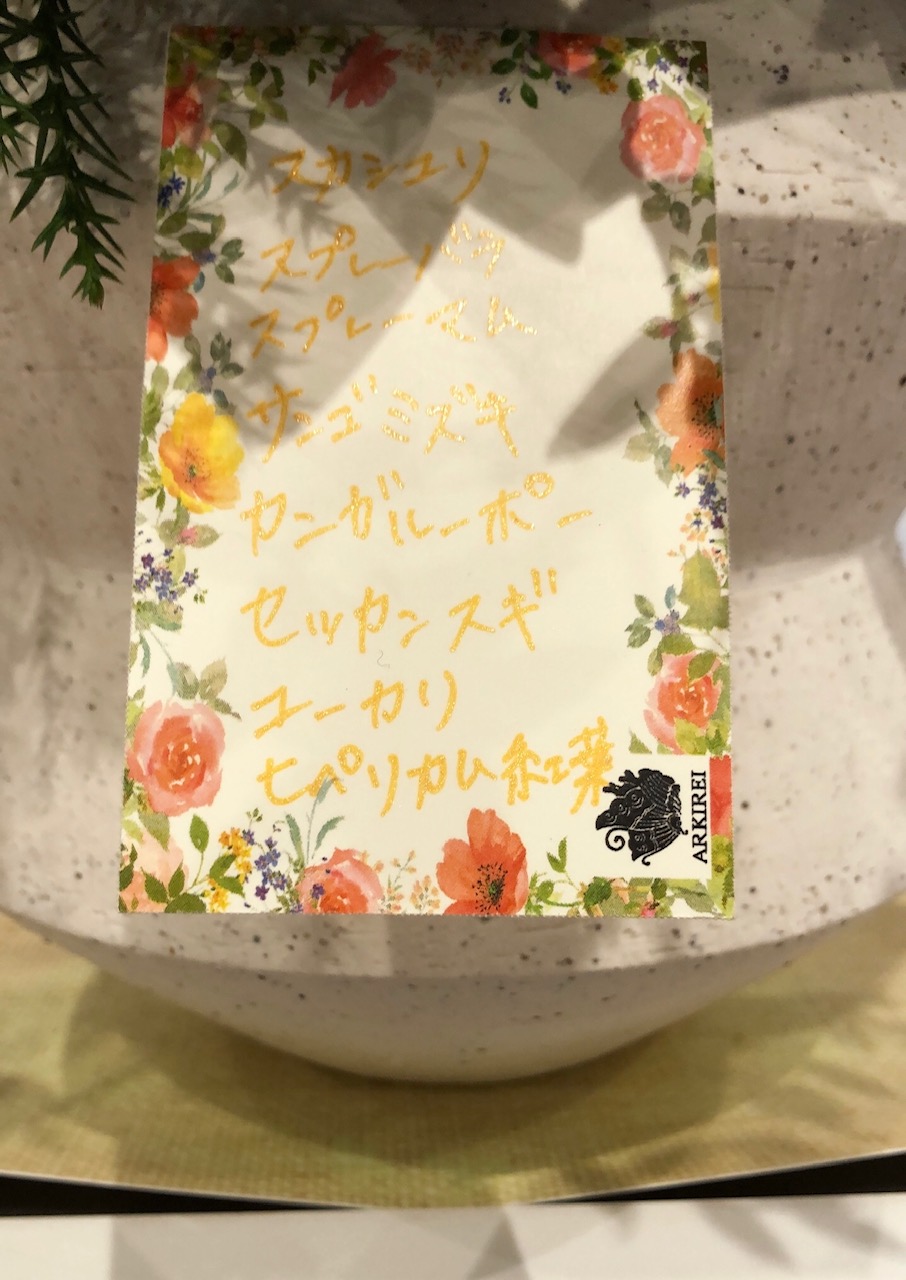 スカシユリ
スプレーバラ
スプレーマム
サンゴミズキ
カンガルーポー
セッカンスギ
ユーカリ
ヒペリカム紅葉
ARKIREI